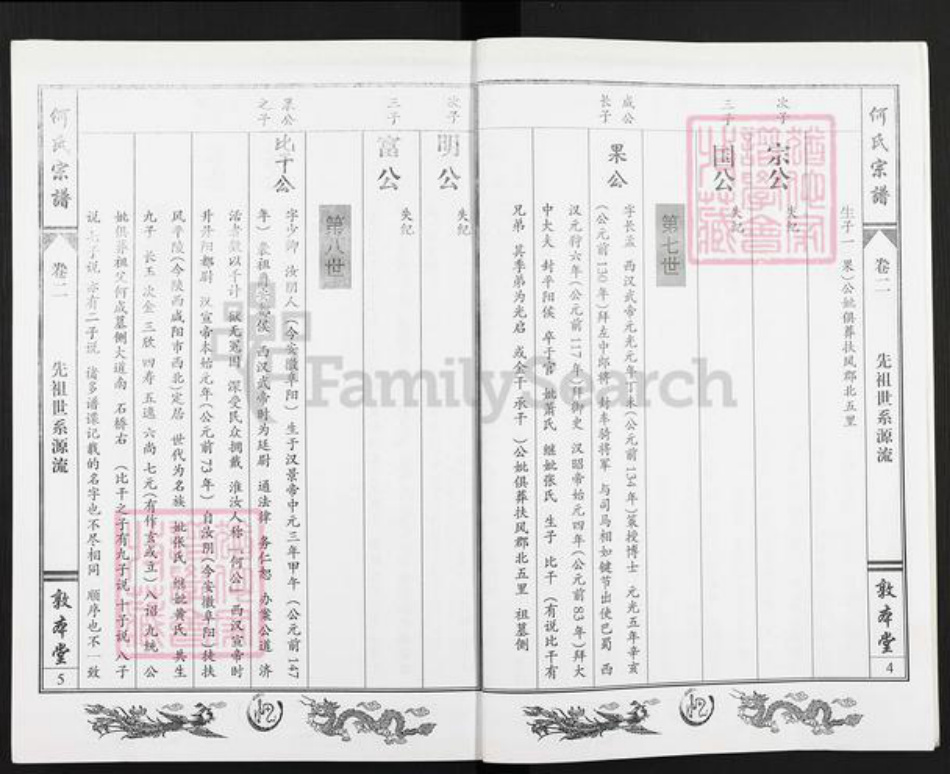 何氏宗譜
卷二
先祖世系源流
敦本堂
4
生子一 果）公妣俱葬扶风郡北五里
次子
宗公
失纪
三子
国公
失纪
第七世
成公
长子
果公
字长孟 西汉武帝元光元年丁未（公元前134年）策授博士 元光五年辛亥
（公元前130年）拜左中郎将 封车骑将军 与司马相如键节出使巴蜀 西
汉元狩六年（公元前117年）拜御史 汉昭帝始元四年（公元前83年）拜大
中大夫 封平阳侯 卒于官 妣萧氏 继妣张氏 生子 比干 （有说比干有
兄弟 其季弟为光启 或金干 承干 ）公妣俱葬扶风郡北五里 祖墓侧
次子
明公
失纪
三子
富公
失纪
第八世
果公
之子
比干公
字少卿 汝阴人（今安徽阜阳）生于汉景帝中元三年甲午（公元前147
年）袭祖 侯 西汉武帝时为廷尉 通法律 务仁恕 办案公道 济
活者数以千计 狱无冤囚 深受民众拥戴 淮汝人称“何公” 西汉宣帝时
升丹阳都尉 汉宣帝本始元年（公元前73年）自汝阴（今安徽阜阳）徒扶
风平陵（今陕西咸阳市西北）定居 世代为名族 妣张氏 继妣黄氏 共生
九子 长玉 次金 三欣 四寿 五逵 六尚 七元（有作玄或立）八诏 九统 公
妣俱葬祖父何成墓侧大道南 石桥右 （比干之子有九子说 十子说 八子
说 七子说 亦有二子说 诸多谱谍记载的名字也不尽相同 顺序也不一致
何氏宗譜
卷二
先祖世系源流
敦本堂
5
FamilySearch